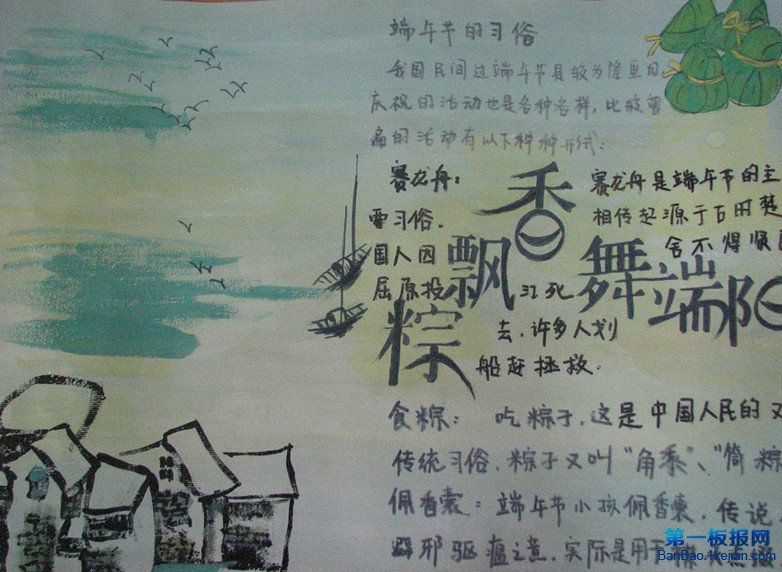 端午节的习俗
我国民间过端午节是较为隆重的
庆祝的活动也是各种各样,比较普
遍的活动有以下种种形式:
赛龙舟: 赛龙舟是端午节的主
要习俗. 相传起源于古时楚
国人因 舍不得贤
屈原投 江死
去,许多人划
船赶拯救.
粽飘香舞端阳
食粽: 吃粽子,这是中国人民的又
传统习俗,粽子又叫"角黍"、"筒粽
佩香囊:端午节小孩佩香囊,传说
辟邪驱瘟之意,实际是用于
第一板报网
BanBao.1kejian.com